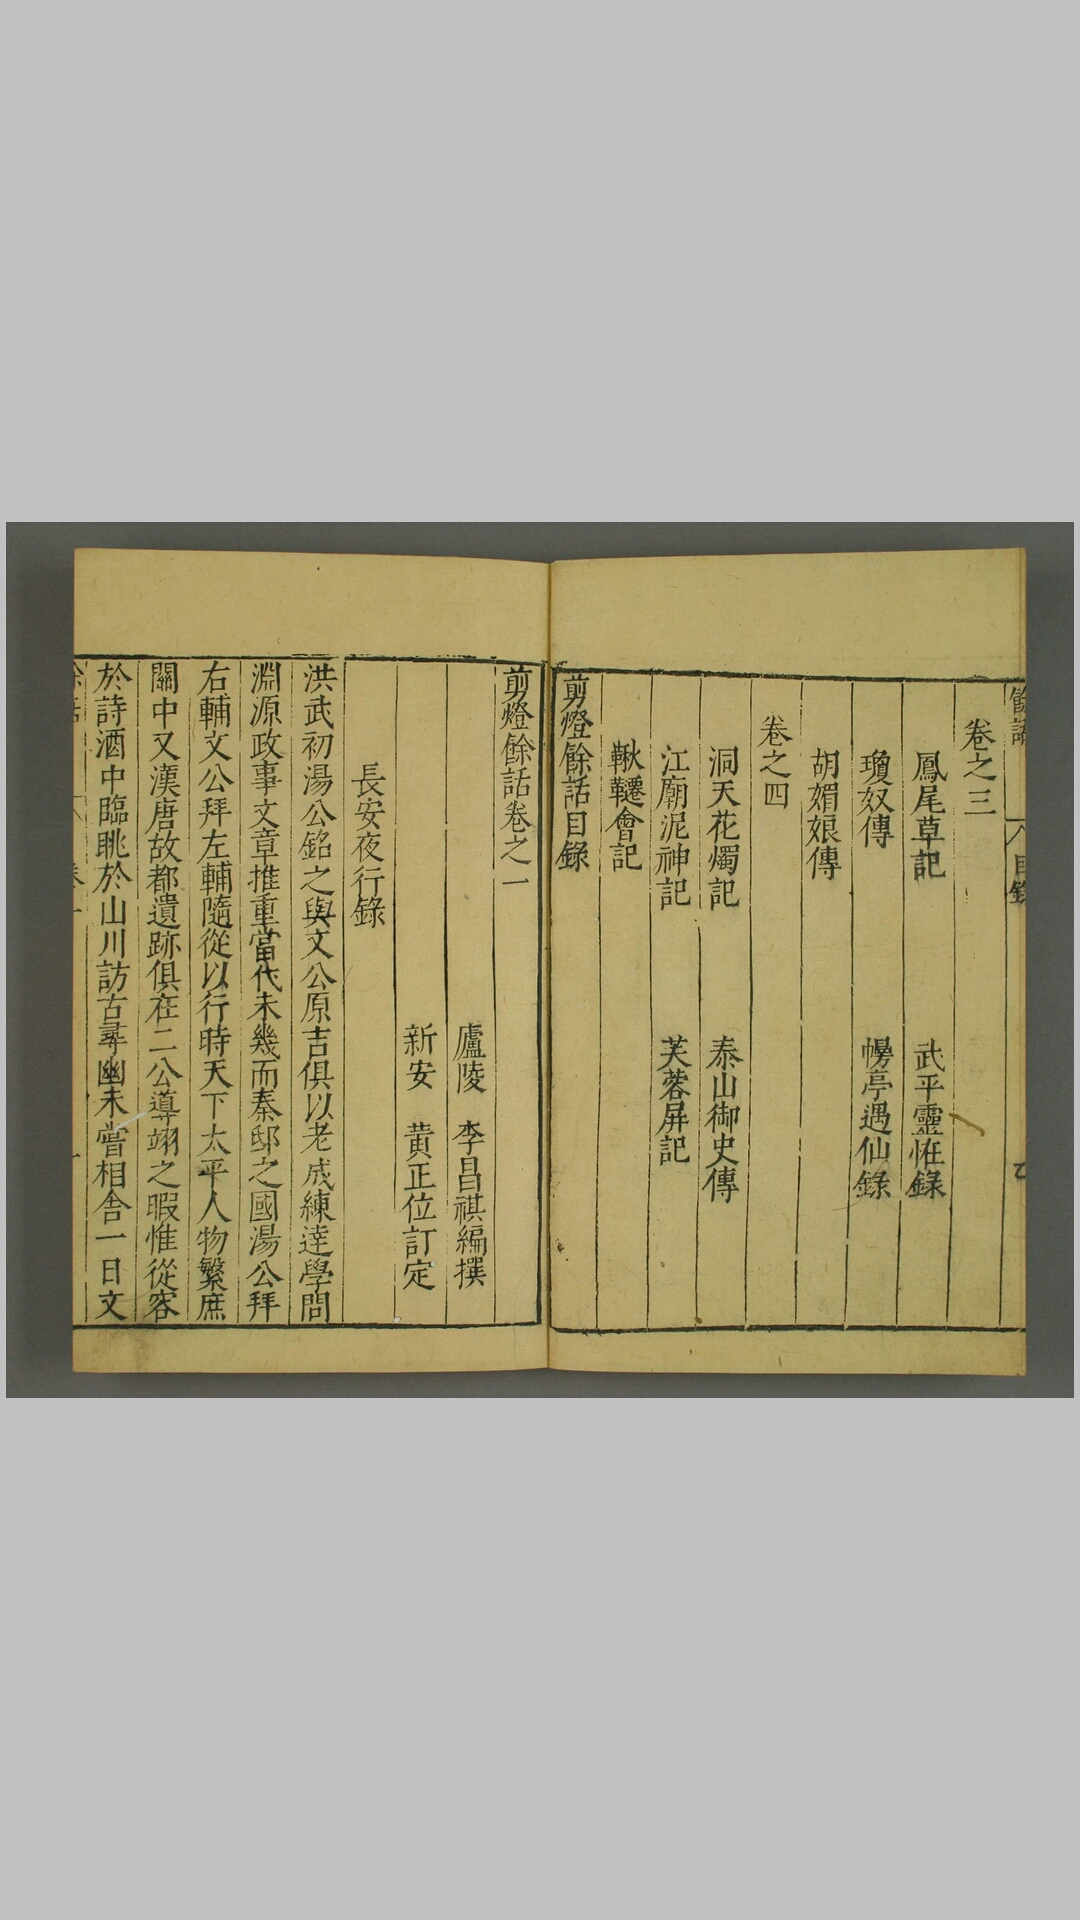 卷之三
鳳尾草記　武平靈恠錄
瓊奴傳　幔亭遇仙錄
胡媚娘傳
卷之四
洞天花燭記　泰山御史傳
江廟泥神記　芙蓉屏記
鞦韆會記
剪燈餘話目錄
剪燈餘話卷之一
廬陵　李昌祺編撰
新安　黄正位訂定
長安夜行錄
洪武初湯公銘之與文公原吉俱以老成練達學問
淵源政事文章推重當代未幾而秦邸之國湯公拜
右輔文公拜左輔隨從以行時天下太平人物繁庶
關中又漢唐故都遺跡俱在二公導翊之暇惟從容
於詩酒中臨眺於山川訪古尋幽未嘗相舍一日文